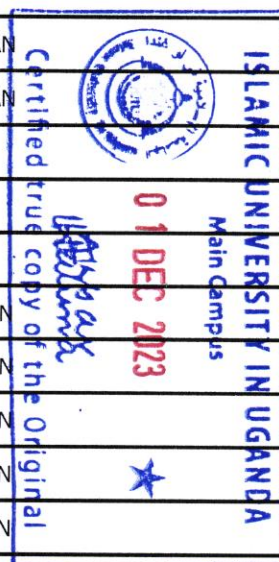 ISLAMIC UNIVERSITY IN UGANDA
Main Campus
0 1 DEC 2023
Certified true copy of the Original
N
N
N
N
N
N
N